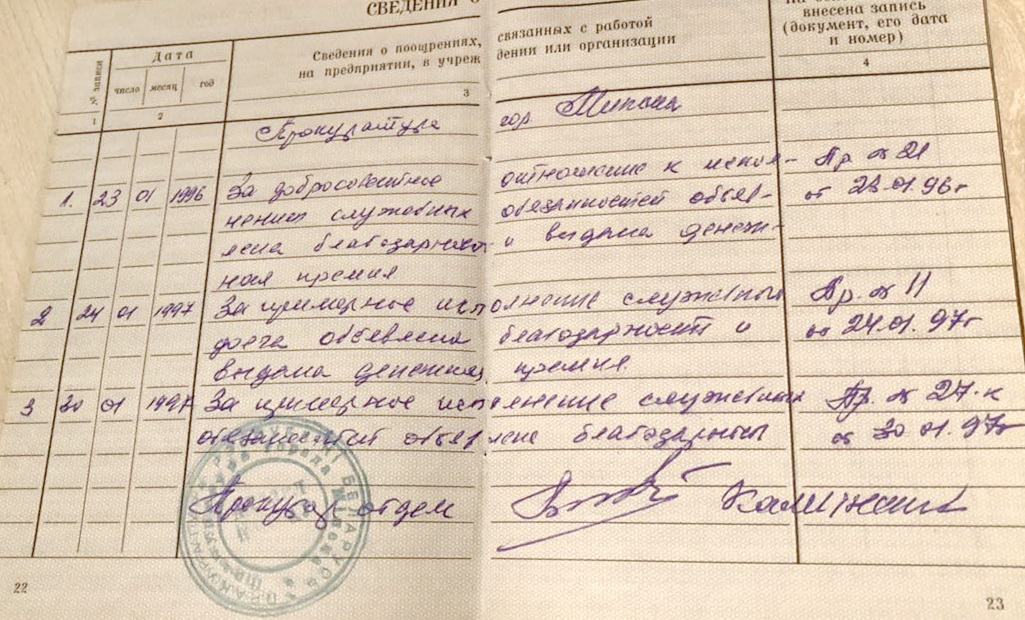 СВЕДЕНИЯ О
№ записи
Дата
число месяц год
Сведения о поощрениях, связанных с работой
на предприятии, в учреждении или организации
внесена запись
(документ, его дата
и номер)
1 2 3 4
Прокуратура гор. Минска
1. 23 01 1996 За добросовестное отношение к испол- Пр. № 21
нению служебных обязанностей объяв- от 23.01.96г
лена благодарность и выдана денеж-
ная премия
2 24 01 1997 За примерное исполнение служебного Пр. № 11
долга объявлена благодарность и от 24.01.97г
выдана денежная премия.
3 30 01 1997 За примерное исполнение служебных Пр. № 27-к
обязанностей объявлена благодарность от 30.01.97г
Прокурор отдела
22
23